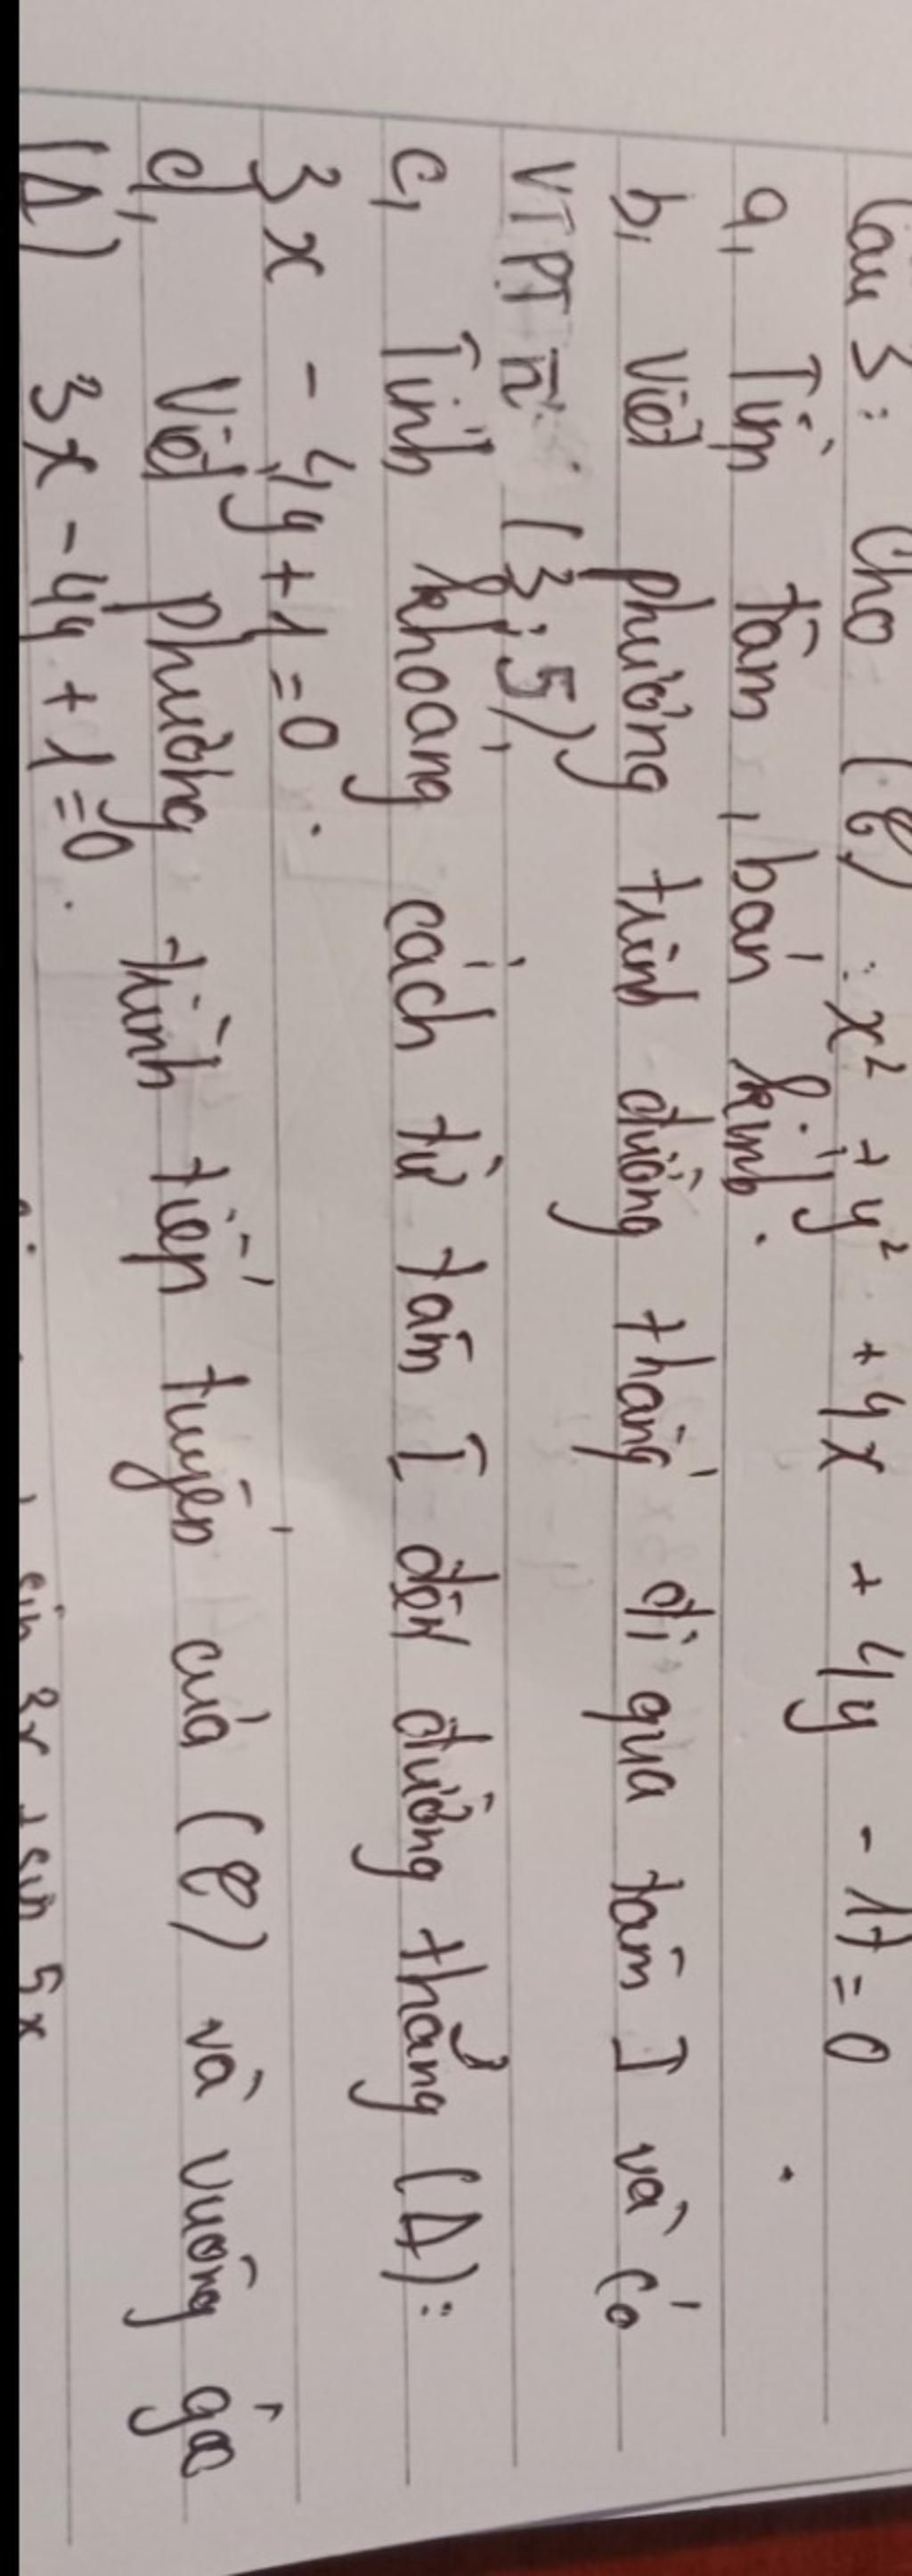 Câu 3: Cho (C): x² + y² + 4x + 4y - 17 = 0
a, Tìm tâm, bán kính.
b, Viết phương trình đường thẳng đi qua tâm I và có
VTPT n (3; 5),
c, Tính khoảng cách từ tâm I đến đường thẳng (Δ):
3x - 4y + 1 = 0.
d, Viết phương trình tiếp tuyến của (C) và vuông góc
(Δ) 3x - 4y + 1 = 0.
sin 3x + sin 5x